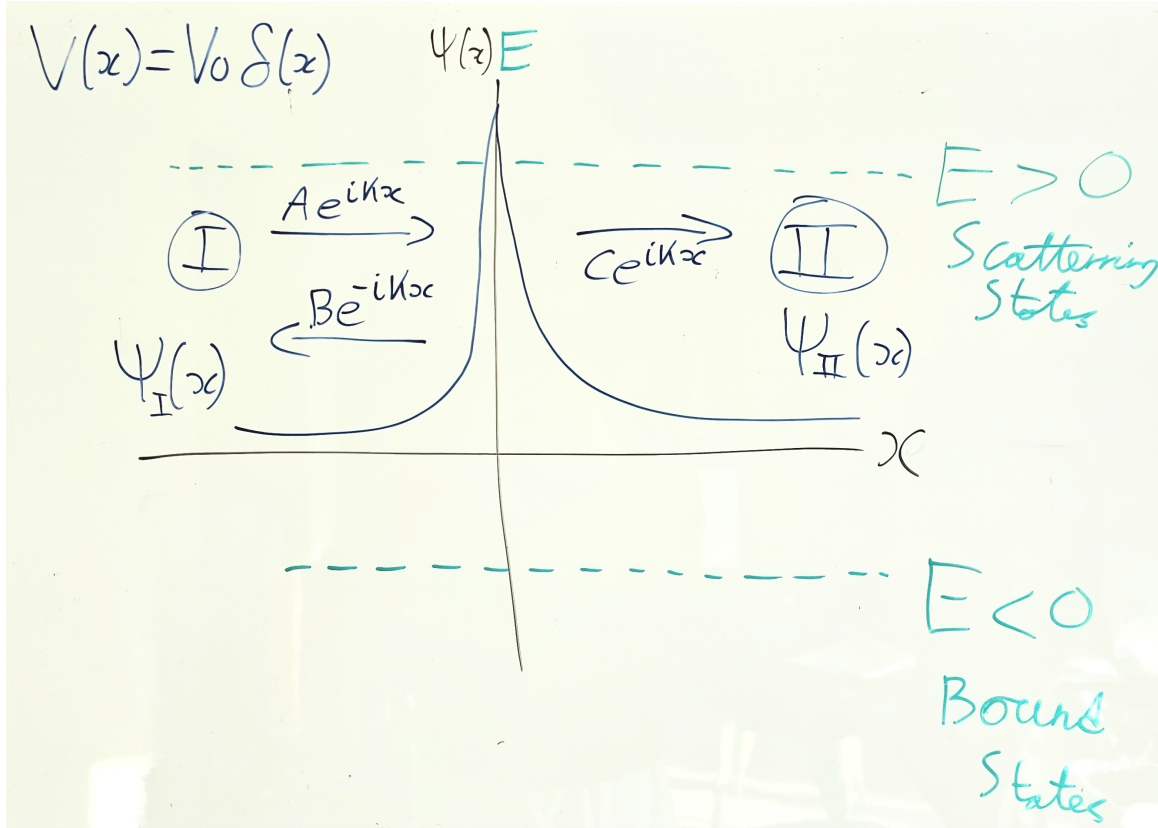 V(x)=V₀ δ(x)
Ψ(x) E
E > 0
Scatterring
States
Ae^{iKx}
I
Be^{-iKx}
Ψ_I(x)
Ce^{iKx}
II
Ψ_{II}(x)
x
E < 0
Bound
States